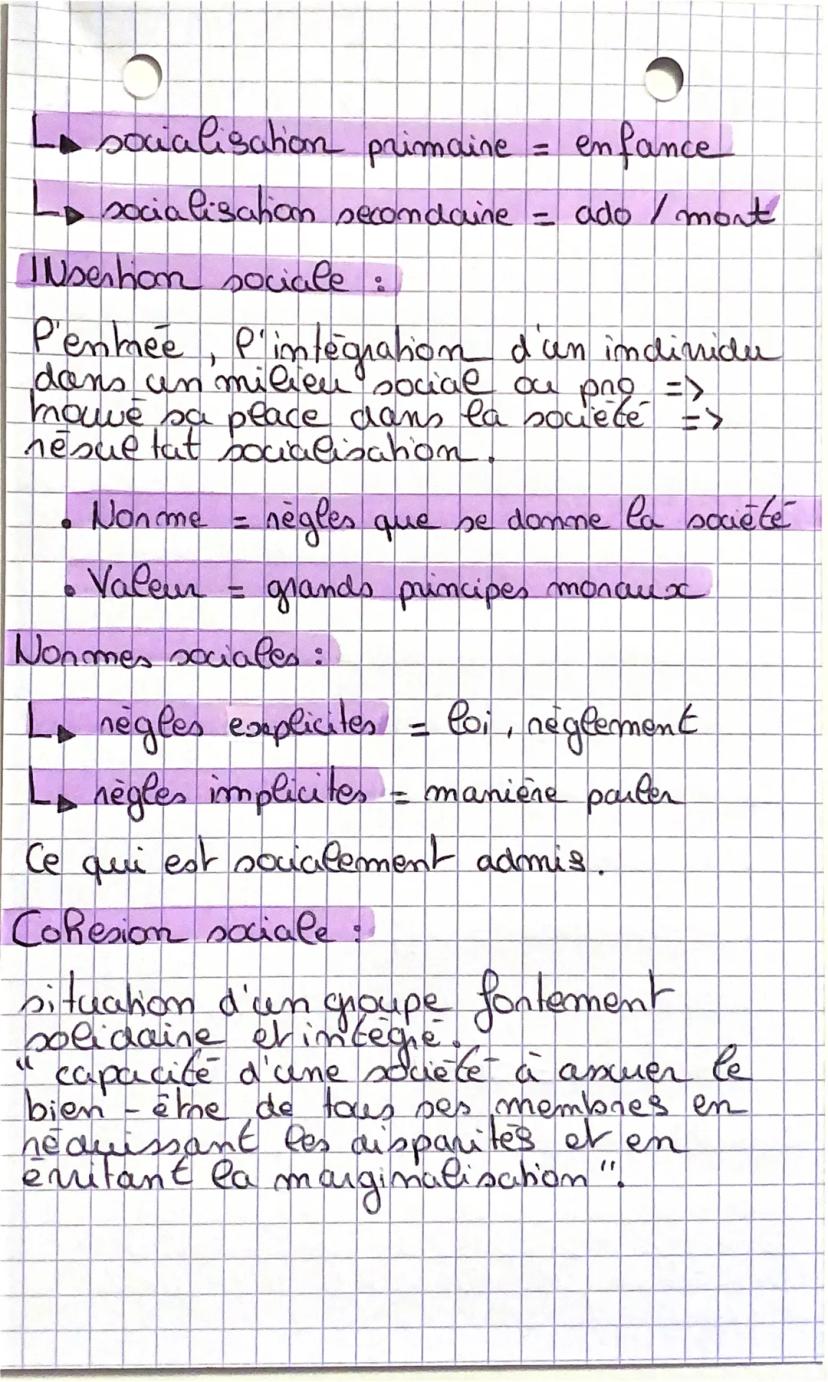 ↳ socialisation primaire = enfance
↳ socialisation secondaire = ado / mort
Insertion sociale :
l'entrée, l'intégration d'un individu
dans un milieu social ou pro =>
trouvé sa place dans la société =>
résultat socialisation.
• Norme = règles que se donne la société
• Valeur = grands principes moraux
Normes sociales :
↳ règles explicites = loi, réglement
↳ règles implicites = manière parler
Ce qui est socialement admis.
Cohesion sociale :
situation d'un groupe fortement
solidaire et intégré.
" capacité d'une société à assurer le
bien-être de tous ses membres en
réduissant les disparités et en
évitant la marginalisation ".